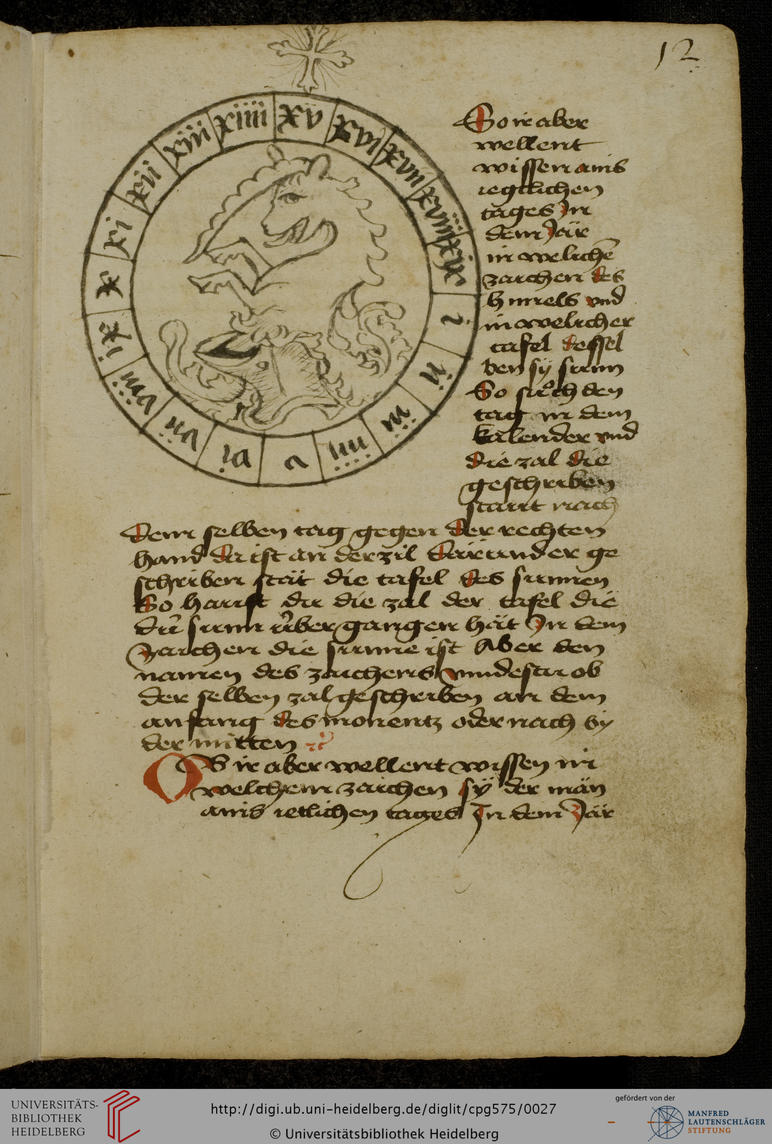 12
xv
xvi
xvii
xviii
xix
i
ii
iii
iiii
v
vi
vii
viii
ix
x
xi
xii
xiii
xiiii
So ir aber
wellent
wissen ains
ieglichen
tages In
dem Jär
in welichē
zaichen des
himels vnd
in welicher
tafel dessel
ben sÿ sunn
So sůch den
tag in dem
kalender vnd
die zal die
geschriben
staut nach
dem selben tag gegen der rechten
hand da ist an der zil dar under ge
schriben stät die tafel des sunnen
So hanst du die zal der tafel die
die sunn über gangen hät In dem
Zaichen die sunne ist Aber den
namen des zaichens vindestu ob
der selben zal geschriben an dem
anfang des monentz oder nach by
der mitten
OB ir aber wellent wissen in
welchem zaichen sÿ der män
ains ietlichen tages In dem Jär
UNIVERSITÄTS-
BIBLIOTHEK
HEIDELBERG
http://digi.ub.uni-heidelberg.de/diglit/cpg575/0027
© Universitätsbibliothek Heidelberg
gefördert von der
MANFRED
LAUTENSCHLÄGER
STIFTUNG